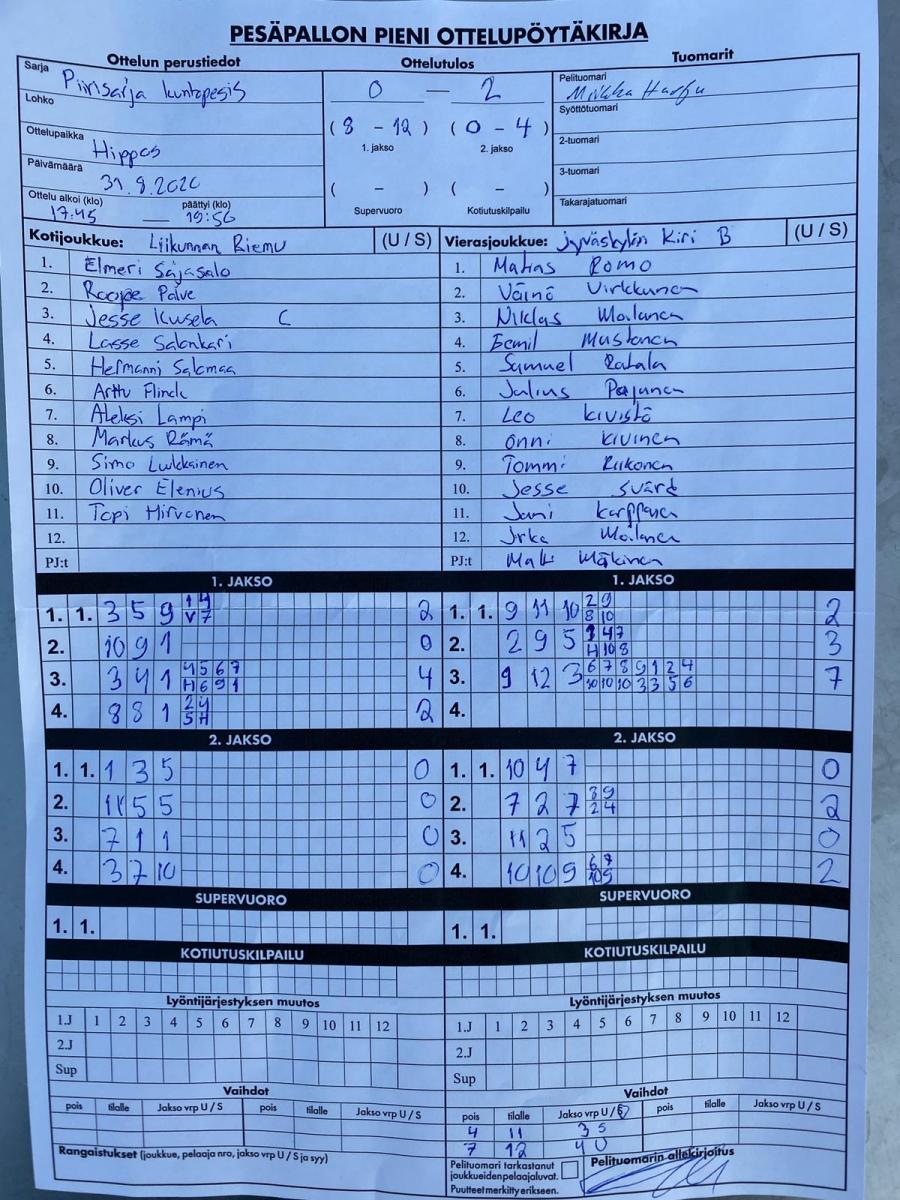 PESÄPALLON PIENI OTTELUPÖYTÄKIRJA
Ottelun perustiedot
Sarja Piirisarja kuntopesis
Lohko
Ottelupaikka Hippos
Päivämäärä 31.8.2020
Ottelu alkoi (klo) päättyi (klo)
17:45 — 19:56
Ottelutulos
0 — 2
( 8 - 12 ) ( 0 - 4 )
1. jakso 2. jakso
( - ) ( - )
Supervuoro Kotiutuskilpailu
Tuomarit
Pelituomari
Syöttötuomari
2-tuomari
3-tuomari
Takarajatuomari
Kotijoukkue: Liikunnan Riemu (U / S)
1. Elmeri Sajasalo
2. Roope Palve
3. Jesse Kuusela C
4. Lasse Salonkari
5. Hermanni Salomaa
6. Arttu Flinck
7. Aleksi Lampi
8. Markus Rämä
9. Simo Luukkainen
10. Oliver Elenius
11. Topi Hirvonen
12.
PJ:t
Vierasjoukkue: Jyväskylän Kiri B (U / S)
1. Matias Romo
2. Väinö Virkkunen
3. Niklas Moilanen
4. Eemil Mustonen
5. Samuel Ratala
6. Julius Pajunen
7. Leo Kivistö
8. Onni Kivinen
9. Tommi Riikonen
10. Jesse Svärd
11. Jani Karppanen
12. Moilanen
PJ:t Matti Mäkinen
1. JAKSO
1. 1. 3 5 9 1 4 2
V 7
2. 10 9 1 0
3. 3 4 1 4 5 6 7 4
H 6 9 1
4. 8 8 1 2 4 2
5 H
1. JAKSO
1. 1. 9 11 10 2 9 2
8 10
2. 2 9 5 4 7 3
H 10 8
3. 9 12 3 6 7 8 9 1 2 4 7
10 10 10 3 3 5 6
4.
2. JAKSO
1. 1. 1 3 5 0
2. 11 5 5 0
3. 7 1 1 0
4. 3 7 10 0
2. JAKSO
1. 1. 10 4 7 0
2. 7 2 7 8 9 2
2 4
3. 11 2 5 0
4. 10 10 9 6 7 2
10 9
SUPERVUORO
1. 1.
SUPERVUORO
1. 1.
KOTIUTUSKILPAILU
KOTIUTUSKILPAILU
Lyöntijärjestyksen muutos
1.J 1 2 3 4 5 6 7 8 9 10 11 12
2.J
Sup
Lyöntijärjestyksen muutos
1.J 1 2 3 4 5 6 7 8 9 10 11 12
2.J
Sup
Vaihdot
pois tilalle Jakso vrp U / S pois tilalle Jakso vrp U / S
Vaihdot
pois tilalle Jakso vrp U / S pois tilalle Jakso vrp U / S
4 11 3 S
7 12 4 U
Rangaistukset (joukkue, pelaaja nro, jakso vrp U / S ja syy)
Pelituomari tarkastanut
joukkueiden pelaajaluvat.
Puutteet merkitty erikseen.
Pelituomarin allekirjoitus